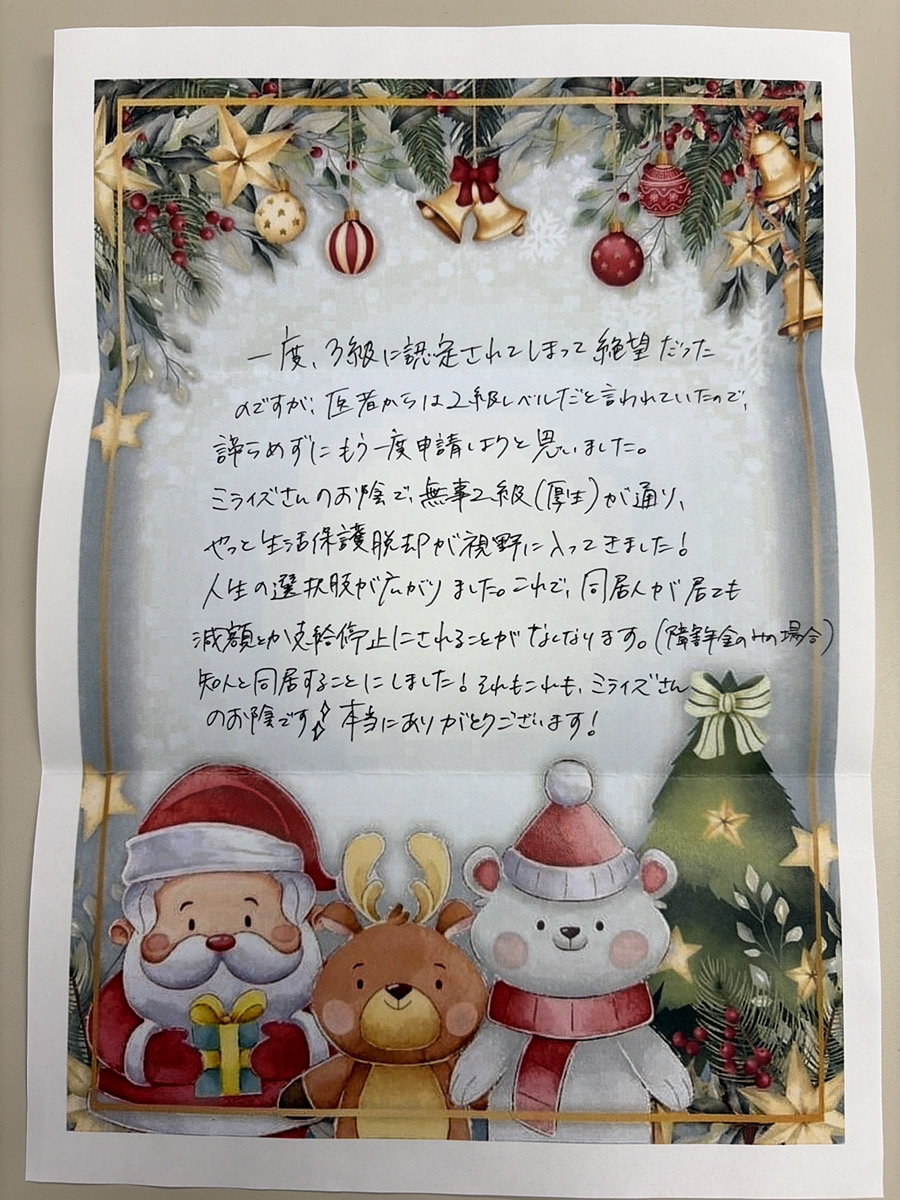 一度、3級に認定されてしまって絶望だった
のですが、医者からは2級レベルだと言われていたので、
諦らめずにもう一度申請しようと思いました。
ミライズさんのお陰で、無事2級(厚生)が通り、
やっと生活保護脱却が視野に入ってきました!
人生の選択肢が広がりました。これで、同居人が居ても
減額とか支給停止にされることがなくなります。(障害年金のみの場合)
知人と同居することにしました!それもこれも、ミライズさん
のお陰です 本当にありがとうございます!